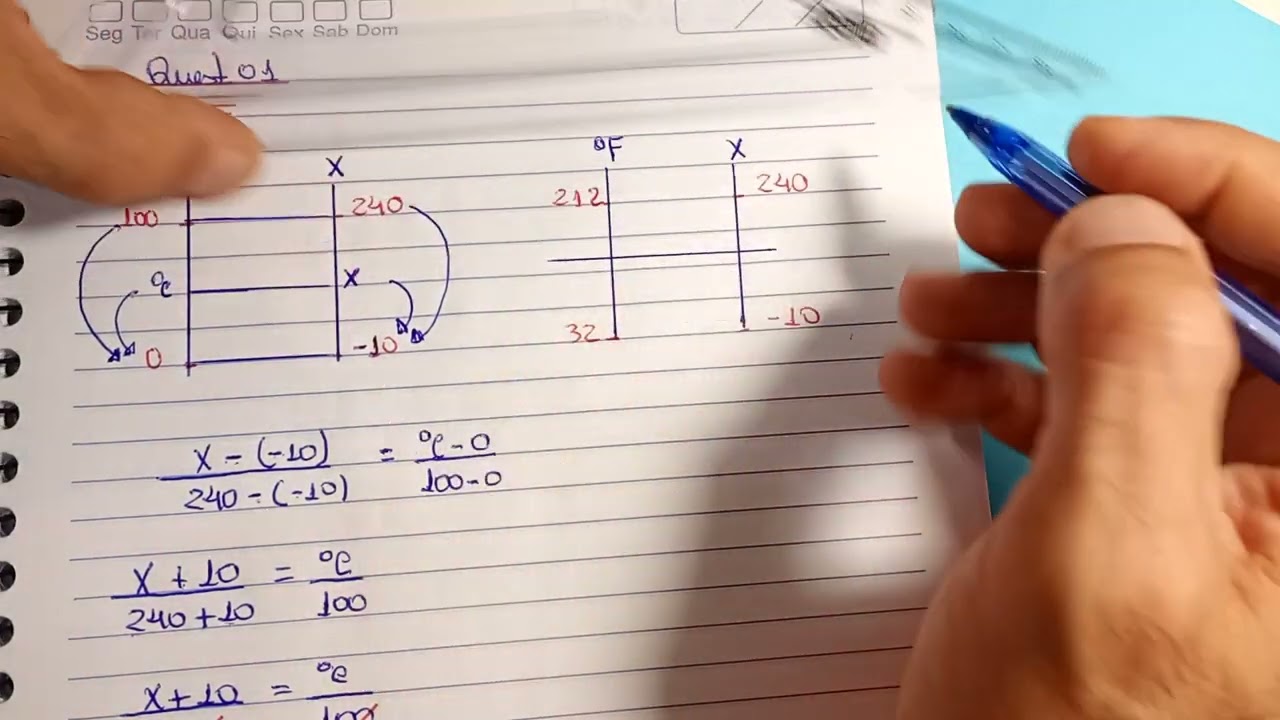 Seg Ter Qua Qui Sex Sab Dom
Quest 01
X
100 240
°C X
0 -10
°F X
212 240
32 -10
X - (-10) / 240 - (-10) = °C - 0 / 100 - 0
X + 10 / 240 + 10 = °C / 100
X + 10 = °C
100